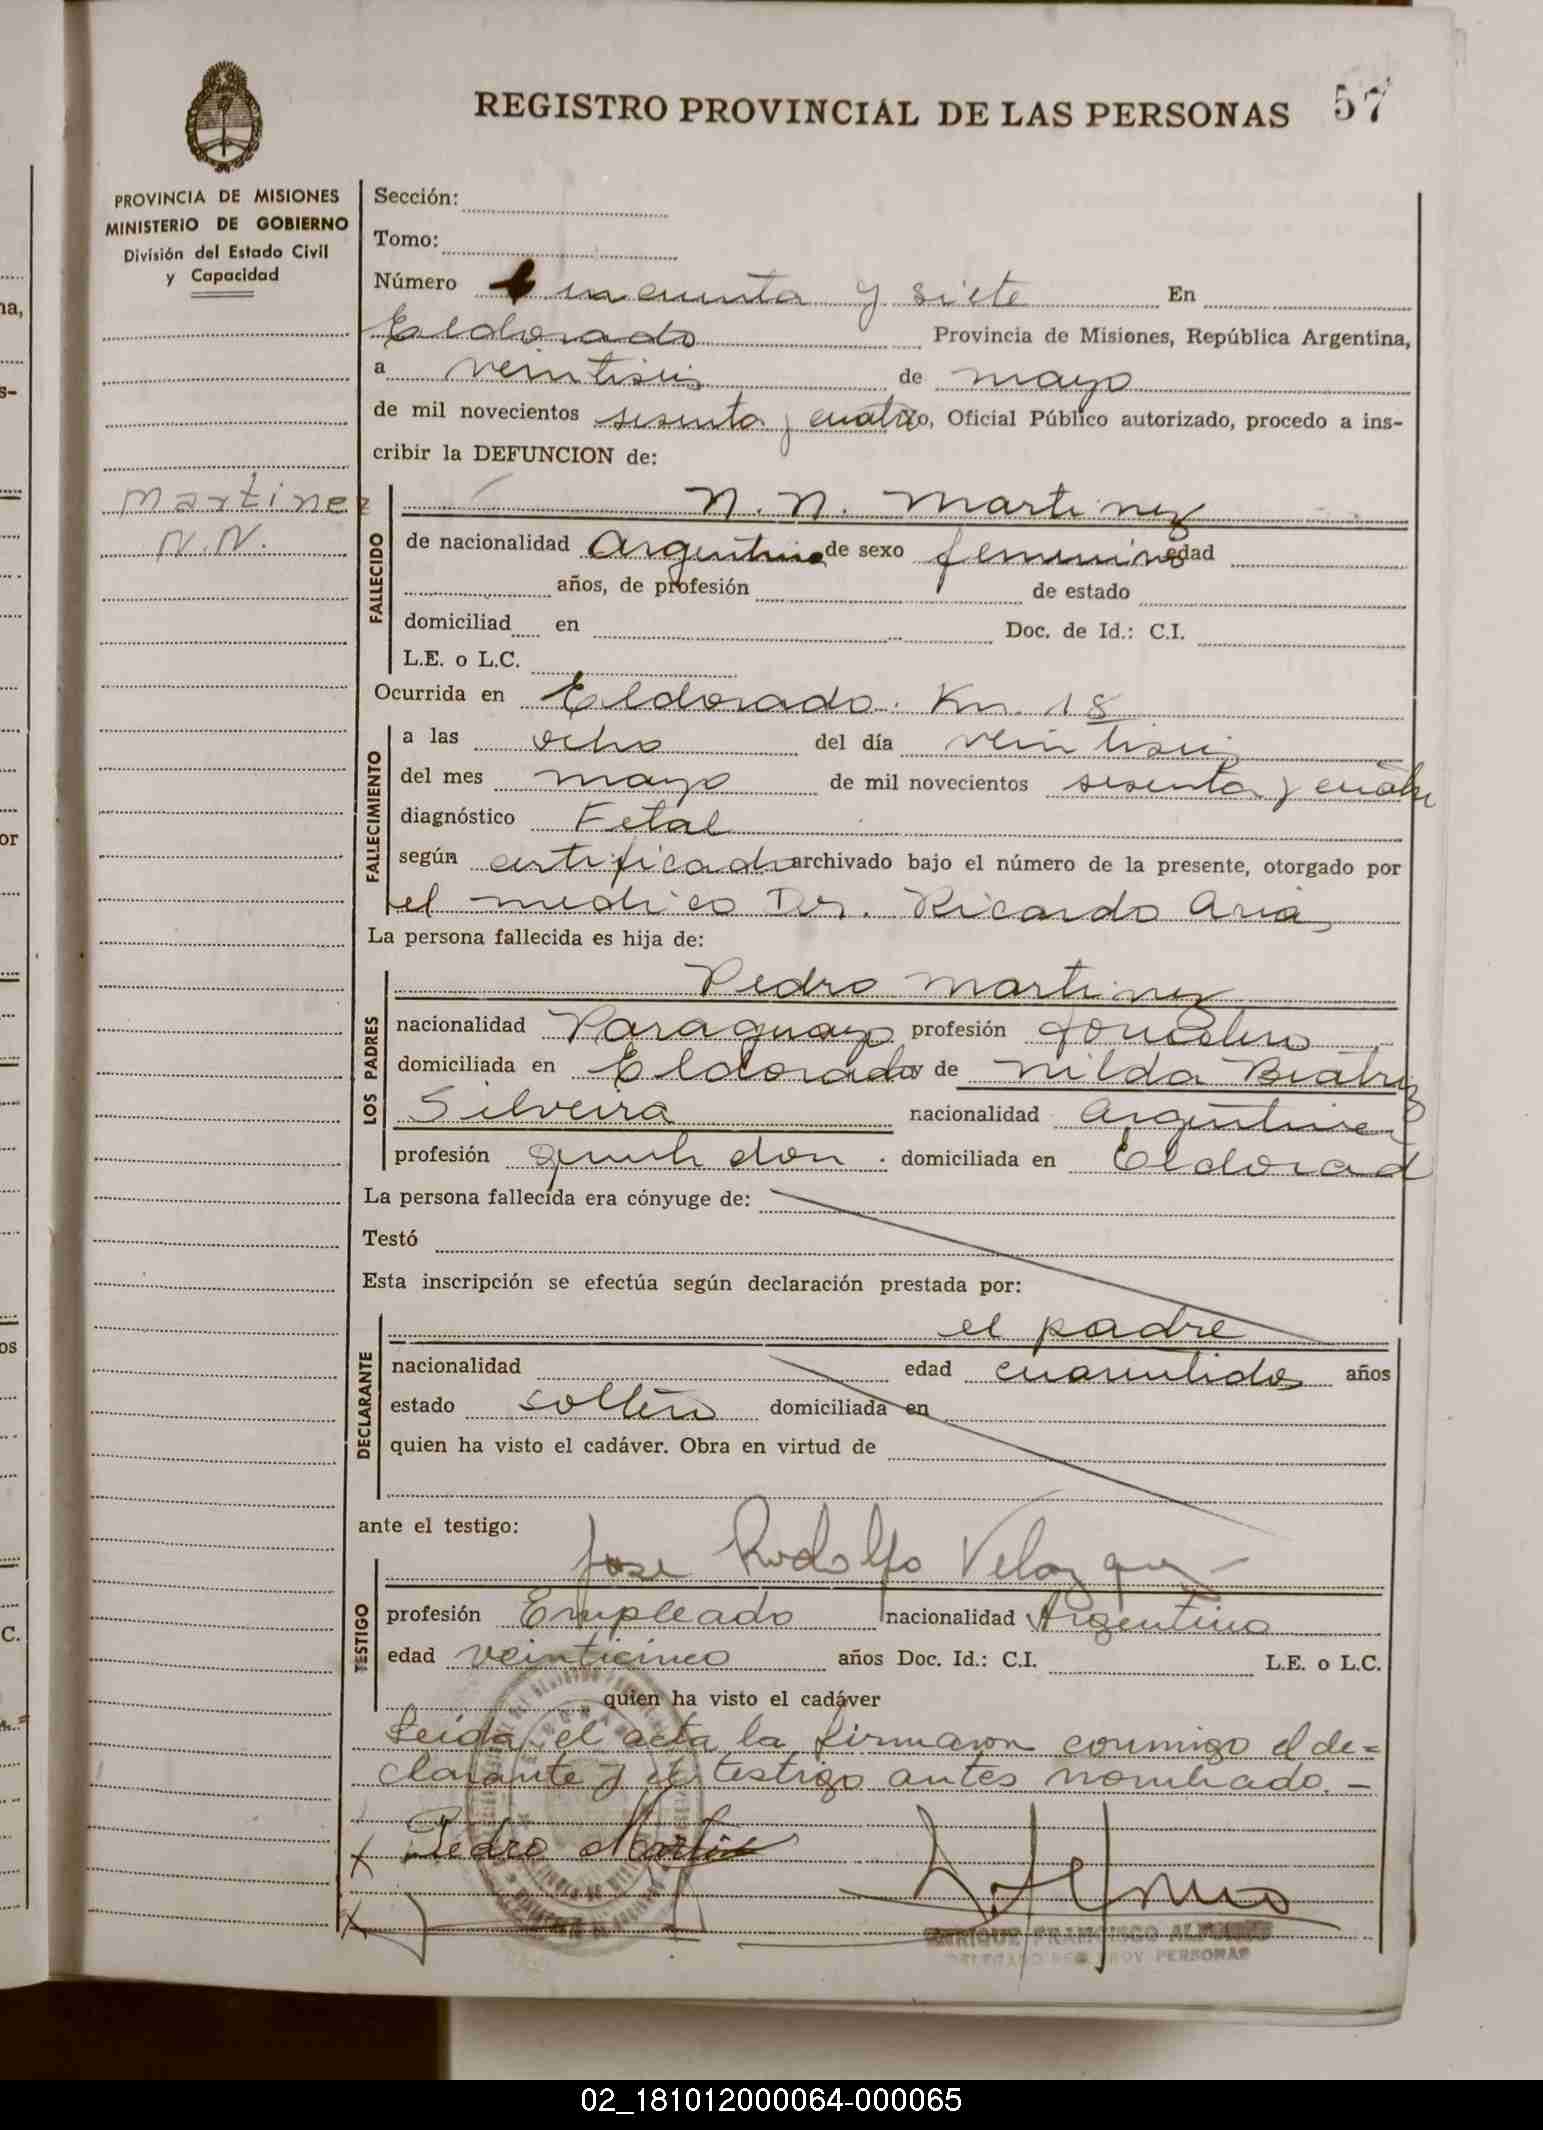 REGISTRO PROVINCIAL DE LAS PERSONAS 57
PROVINCIA DE MISIONES
MINISTERIO DE GOBIERNO
División del Estado Civil
y Capacidad
Martinez
N.N.
Sección:
Tomo:
Número cincuenta y siete En
Eldorado Provincia de Misiones, República Argentina,
a veintiseis de mayo
de mil novecientos sesenta y cuatro Yo, Oficial Público autorizado, procedo a ins-
cribir la DEFUNCION de:
FALLECIDO
N. N. Martinez
de nacionalidad Argentina de sexo femenino edad
años, de profesión de estado
domiciliad en Doc. de Id.: C.I.
L.E. o L.C.
FALLECIMIENTO
Ocurrida en Eldorado. Km. 18
a las ocho del día veintiseis
del mes mayo de mil novecientos sesenta y cuatro
diagnóstico Fetal
según certificado archivado bajo el número de la presente, otorgado por
el medico Dr. Ricardo Arias
La persona fallecida es hija de:
LOS PADRES
Pedro Martinez
nacionalidad Paraguayo profesión jornalero
domiciliada en Eldorado y de Nilda Beatriz
Silveira nacionalidad Argentina
profesión domiciliada en Eldorado
La persona fallecida era cónyuge de:
Testó
Esta inscripción se efectúa según declaración prestada por:
DECLARANTE
el padre
nacionalidad edad cuarentidos años
estado soltero domiciliada en
quien ha visto el cadáver. Obra en virtud de
ante el testigo:
TESTIGO
Jose Rodolfo Velazquez
profesión Empleado nacionalidad Argentino
edad veinticinco años Doc. Id.: C.I. L.E. o L.C.
quien ha visto el cadáver
Leida el acta la firmaron conmigo el de=
clarante y el testigo antes nombrado. —
x Pedro Martinez
x
ENRIQUE FRANCISCO ALFONSO
DELEGADO REG. PROV. PERSONAS
02_181012000064-000065